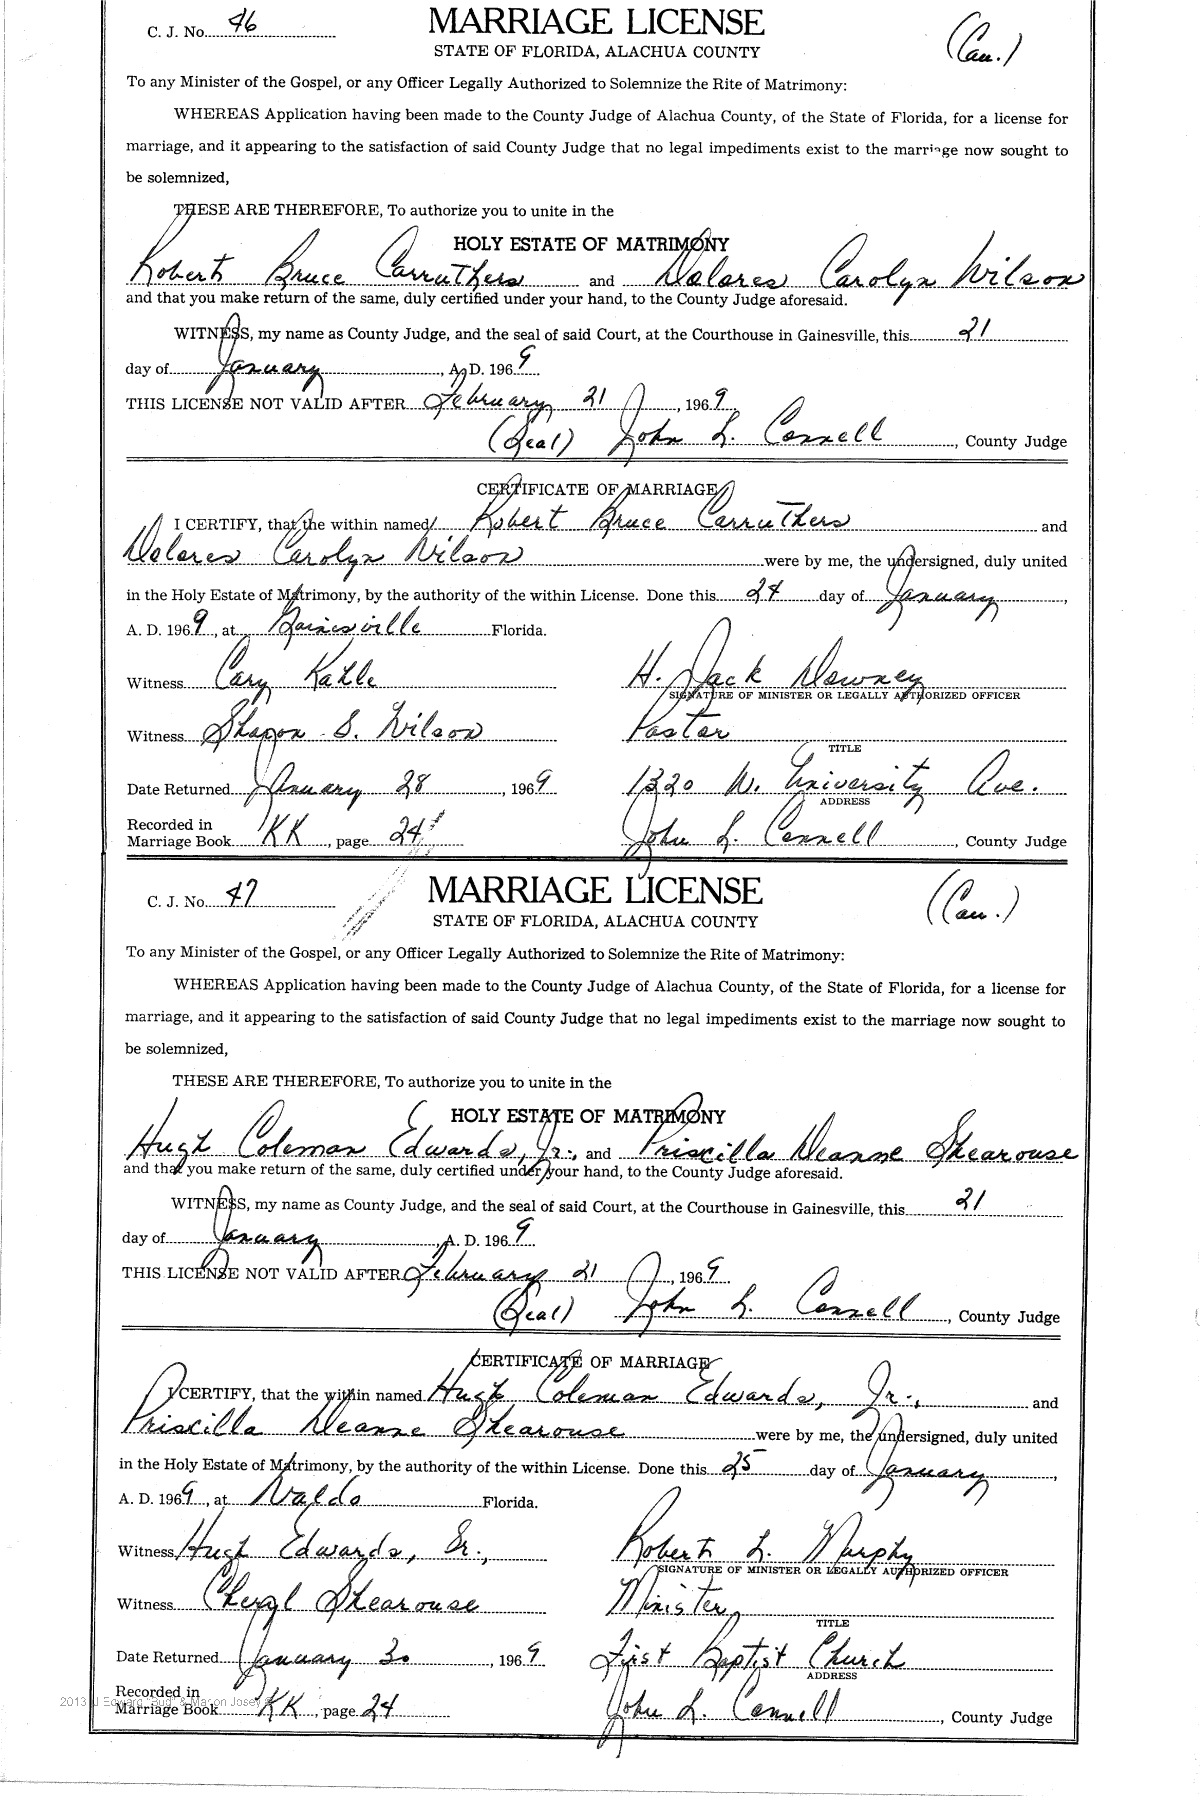 C. J. No. 46
MARRIAGE LICENSE
(Cau.)
STATE OF FLORIDA, ALACHUA COUNTY
To any Minister of the Gospel, or any Officer Legally Authorized to Solemnize the Rite of Matrimony:
WHEREAS Application having been made to the County Judge of Alachua County, of the State of Florida, for a license for
marriage, and it appearing to the satisfaction of said County Judge that no legal impediments exist to the marriage now sought to
be solemnized,
THESE ARE THEREFORE, To authorize you to unite in the
HOLY ESTATE OF MATRIMONY
Robert Bruce Carruthers and Delores Carolyn Wilson
and that you make return of the same, duly certified under your hand, to the County Judge aforesaid.
WITNESS, my name as County Judge, and the seal of said Court, at the Courthouse in Gainesville, this 21
day of January, A. D. 1969
THIS LICENSE NOT VALID AFTER February 21, 1969
(Seal) John L. Connell, County Judge
CERTIFICATE OF MARRIAGE
I CERTIFY, that the within named Robert Bruce Carruthers and
Delores Carolyn Wilson were by me, the undersigned, duly united
in the Holy Estate of Matrimony, by the authority of the within License. Done this 24 day of January,
A. D. 1969, at Gainesville Florida.
Witness Cary Kahle H. Jack Downey
SIGNATURE OF MINISTER OR LEGALLY AUTHORIZED OFFICER
Witness Sharon S. Wilson Pastor
TITLE
Date Returned January 28, 1969 1320 W. University Ave.
ADDRESS
Recorded in
Marriage Book KK, page 24 John L. Connell, County Judge
C. J. No. 47
MARRIAGE LICENSE
(Cau.)
STATE OF FLORIDA, ALACHUA COUNTY
To any Minister of the Gospel, or any Officer Legally Authorized to Solemnize the Rite of Matrimony:
WHEREAS Application having been made to the County Judge of Alachua County, of the State of Florida, for a license for
marriage, and it appearing to the satisfaction of said County Judge that no legal impediments exist to the marriage now sought to
be solemnized,
THESE ARE THEREFORE, To authorize you to unite in the
HOLY ESTATE OF MATRIMONY
Hugh Coleman Edwards, Jr., and Priscilla Deanne Shearouse
and that you make return of the same, duly certified under your hand, to the County Judge aforesaid.
WITNESS, my name as County Judge, and the seal of said Court, at the Courthouse in Gainesville, this 21
day of January, A. D. 1969
THIS LICENSE NOT VALID AFTER February 21, 1969
(Seal) John L. Connell, County Judge
CERTIFICATE OF MARRIAGE
I CERTIFY, that the within named Hugh Coleman Edwards, Jr., and
Priscilla Deanne Shearouse were by me, the undersigned, duly united
in the Holy Estate of Matrimony, by the authority of the within License. Done this 25 day of January,
A. D. 1969, at Waldo Florida.
Witness Hugh Edwards, Sr., Robert L. Murphy
SIGNATURE OF MINISTER OR LEGALLY AUTHORIZED OFFICER
Witness Cheryl Shearouse Minister
TITLE
Date Returned January 30, 1969 First Baptist Church
ADDRESS
Recorded in
Marriage Book KK, page 24 John L. Connell, County Judge
2013 J Edward "Bud" & Marion Josey